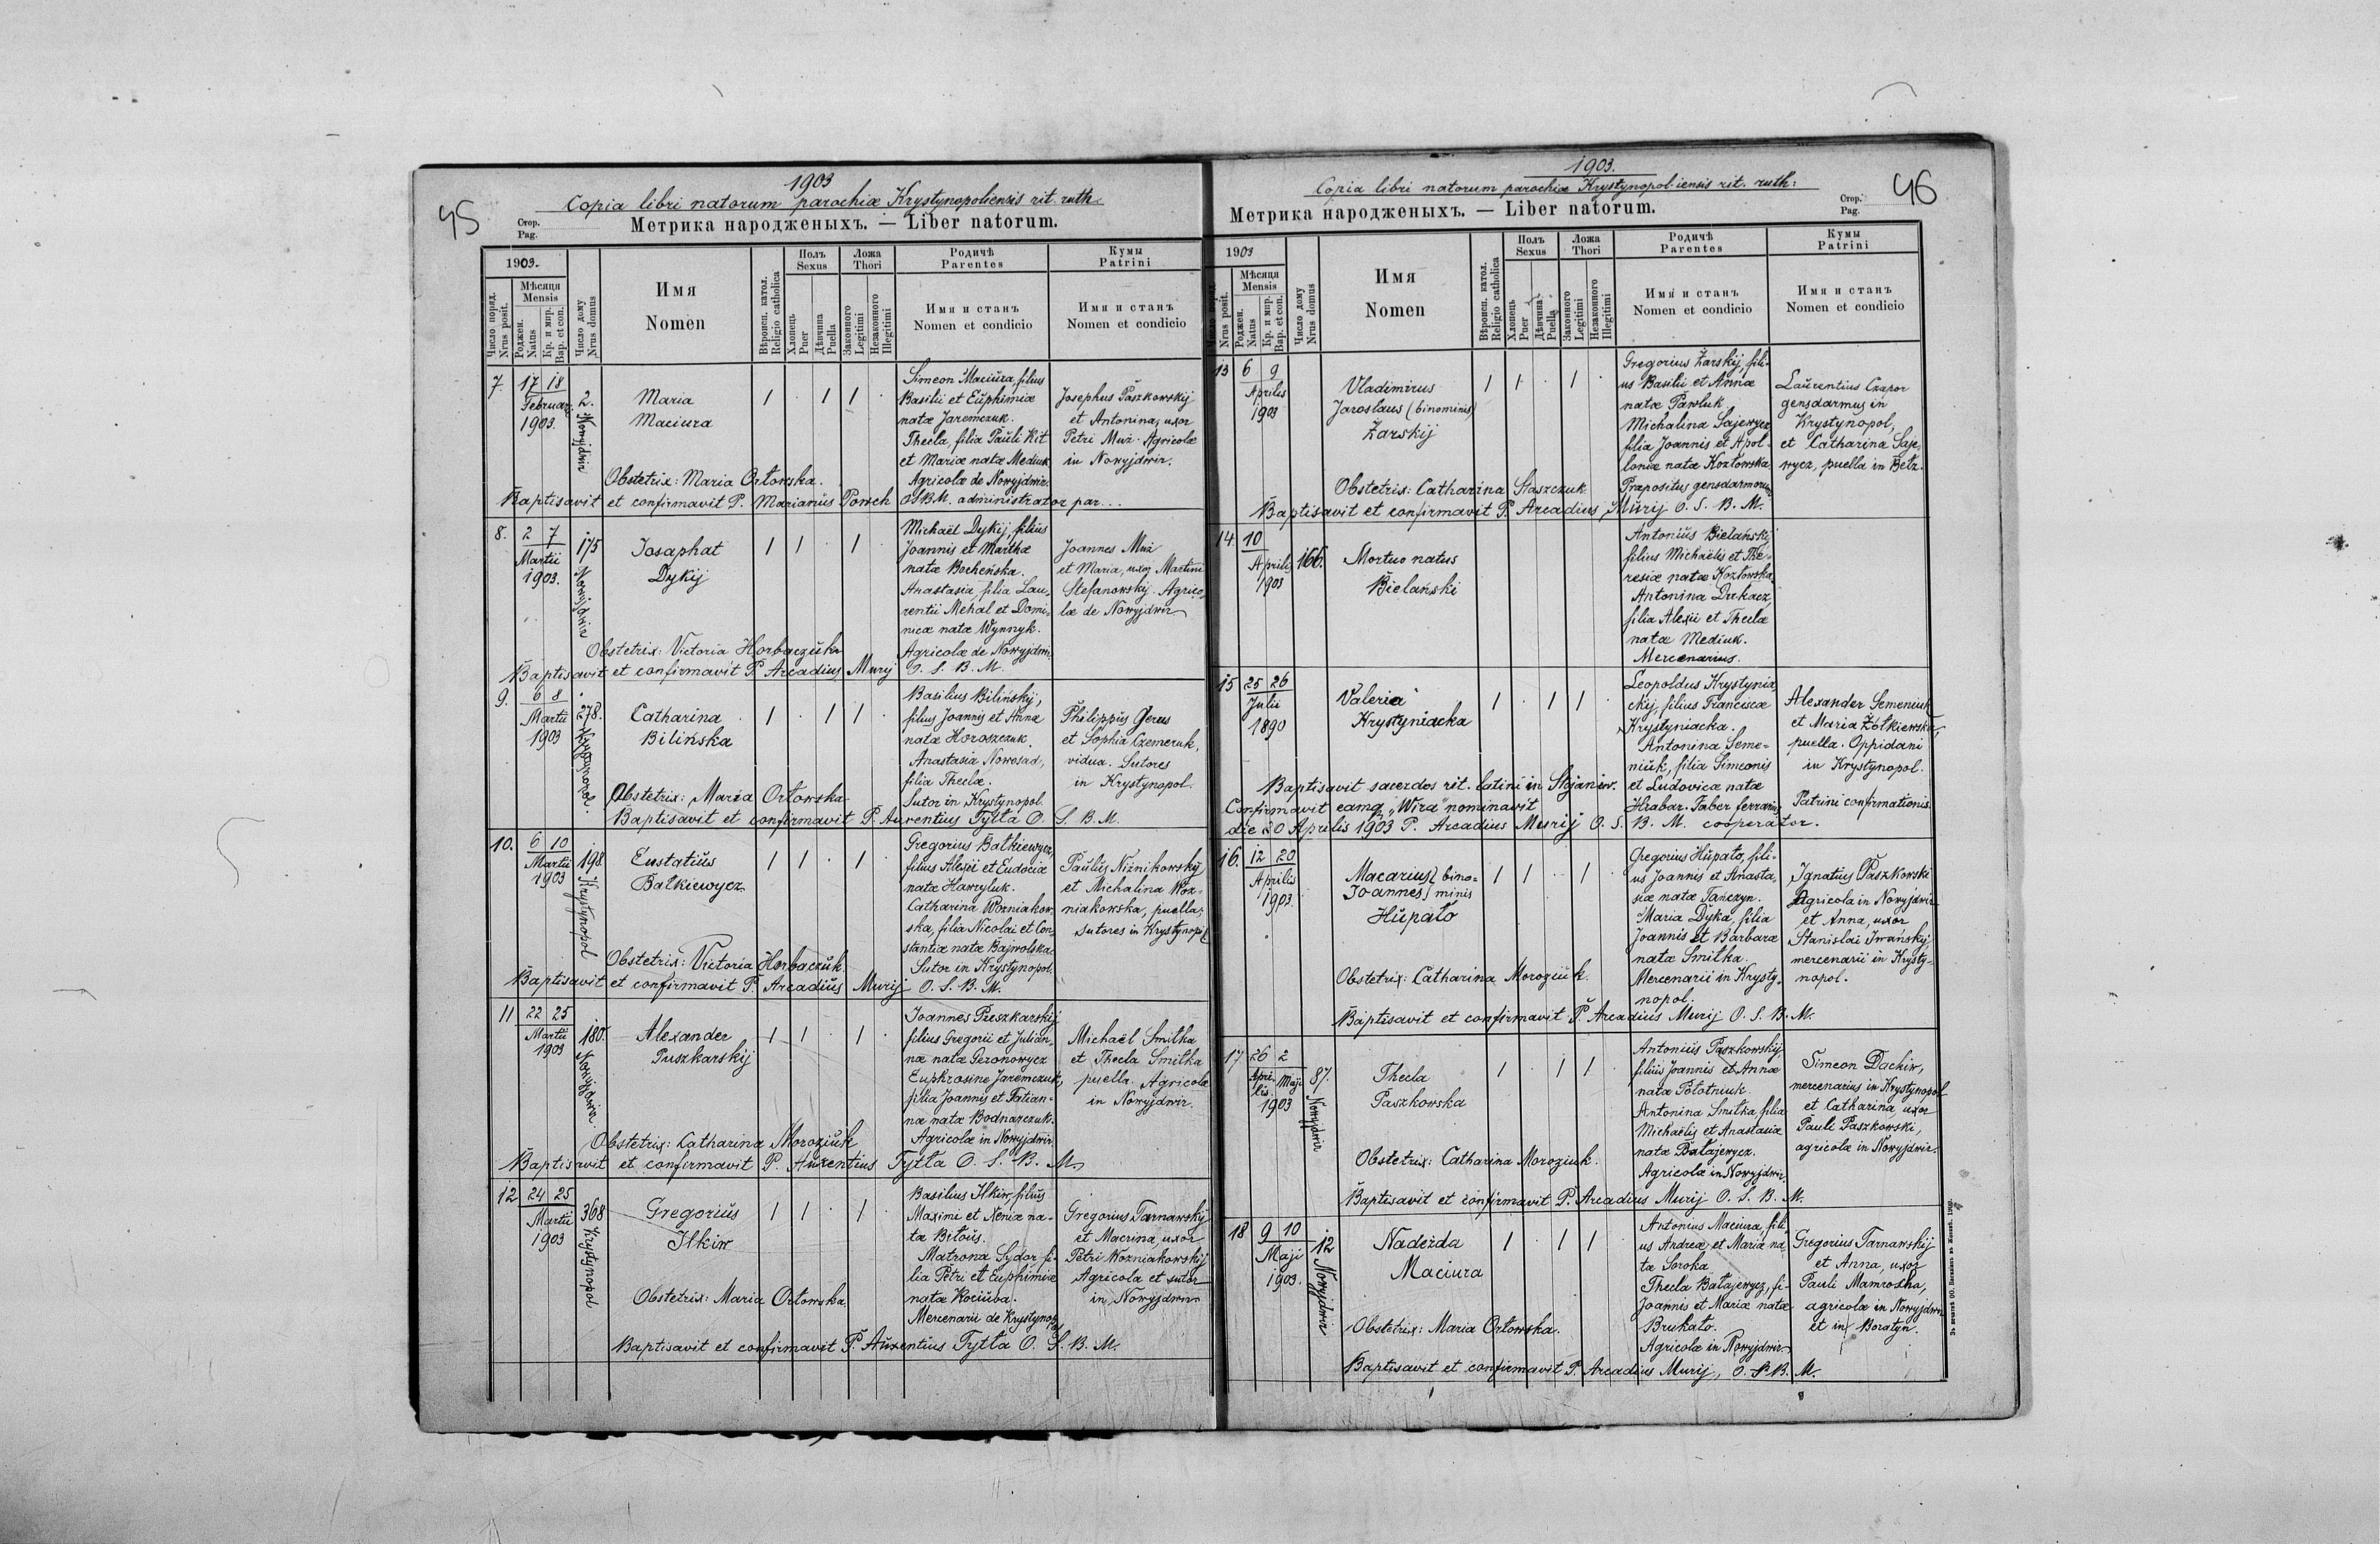 45
1903
Copia libri natorum parochiæ Krystynopoliensis rit. ruth.
Стор.
Pag.
Метрика народженыхъ. — Liber natorum.
1903.
Число поряд.
Nrus posit.
Мѣсяця
Mensis
Роджен.
Natus
Кр. и мир.
Bap. et con.
Число дому
Nrus domus
Имя
Nomen
Вѣроисп. катол.
Religio catholica
Полъ
Sexus
Хлопець
Puer
Дѣвчина
Puella
Ложа
Thori
Законного
Legitimi
Незаконного
Illegitimi
Родичѣ
Parentes
Имя и станъ
Nomen et condicio
Кумы
Patrini
Имя и станъ
Nomen et condicio
7. 17 18
Februar.
1903.
2.
Nowyjdwir
Maria
Maciura
1 · 1 1 ·
Simeon Maciura, filius
Basilii et Euphimiæ
natæ Jaremczuk.
Thecla, filia Pauli Kit
et Mariæ natæ Mediuk
Agricolæ de Nowyjdwir.
Josephus Paszkowskij
et Antonina, uxor
Petri Muż. Agricolæ
in Nowyjdwir.
Obstetrix: Maria Orłowska.
Baptisavit et confirmavit P. Marianus Powch OSBM. administrator par...
8. 2 7
Martii
1903.
175
Nowyjdwir
Josaphat
Dykij
1 1 · 1 ·
Michaël Dykij, filius
Joannis et Marthæ
natæ Bocheńska.
Anastasia, filia Lau-
rentii Mehal et Domi-
nicæ natæ Wynnyk.
Agricolæ de Nowyjdwir.
Joannes Muż
et Maria, uxor Martini
Stefanowskij. Agrico-
læ de Nowyjdwir.
Obstetrix: Victoria Horbaczuk
Baptisavit et confirmavit P. Arcadius Murij O. S. B. M.
9. 6 8
Martii
1903
278.
Krystynopol.
Catharina
Bilińska
1 · 1 1 ·
Basilius Bilińskij,
filius Joannis et Annæ
natæ Horoszczuk.
Anastasia Nowosad,
filia Theclæ.
Sutor in Krystynopol.
Philippus Gerus
et Sophia Czemeruk,
vidua. Sutores
in Krystynopol.
Obstetrix: Maria Orłowska
Baptisavit et confirmavit P. Auxentius Tytła O. S. B. M.
10. 6 10
Martii
1903
198
Krystynopol
Eustatius
Bałkiewycz
1 1 · 1 ·
Gregorius Bałkiewycz,
filius Alexii et Eudociæ
natæ Hawryluk.
Catharina Wozniakow-
ska, filia Nicolai et Con-
stantiæ natæ Bajwolska.
Sutor in Krystynopol.
Paulus Niżnikowskij
et Michalina Woz-
niakowska, puella;
Sutores in Krystynopol
Obstetrix: Victoria Horbaczuk.
Baptisavit et confirmavit P. Arcadius Murij O. S. B. M.
11 22 25
Martii
1903
180.
Nowyjdwir
Alexander
Puszkarskij
1 1 · 1 ·
Joannes Puszkarskij
filius Gregorii et Julian-
næ natæ Geronowycz
Euphrosine Jaremczuk,
filia Joannis et Tatian-
næ natæ Bodnarczuk.
Agricolæ in Nowyjdwir.
Michaël Smitka
et Thecla Smitka
puella. Agricolæ
in Nowyjdwir.
Obstetrix: Catharina Moroziuk
Baptisavit et confirmavit P. Auxentius Tytła O. S. B. M.
12 24 25
Martii
1903
368
Krystynopol
Gregorius
Ilkiw
1 1 · 1 ·
Basilius Ilkiw, filius
Maximi et Xeniæ na-
tæ Biłous.
Matrona Sydor fi-
lia Petri et Euphimiæ
natæ Kociuba.
Mercenarii de Krystynopol
Gregorius Tarnawskij
et Macrina, uxor
Petri Wozniakowskij
Agricola et sutor
in Nowyjdwir.
Obstetrix: Maria Orłowska.
Baptisavit et confirmavit P. Auxentius Tytła O. S. B. M.
1903.
Copia libri natorum parochiæ Krystynopoliensis rit. ruth:
Стор.
Pag.
46
Метрика народженыхъ. — Liber natorum.
1903
Число поряд.
Nrus posit.
Мѣсяця
Mensis
Роджен.
Natus
Кр. и мир.
Bap. et con.
Число дому
Nrus domus
Имя
Nomen
Вѣроисп. катол.
Religio catholica
Полъ
Sexus
Хлопець
Puer
Дѣвчина
Puella
Ложа
Thori
Законного
Legitimi
Незаконного
Illegitimi
Родичѣ
Parentes
Имя и станъ
Nomen et condicio
Кумы
Patrini
Имя и станъ
Nomen et condicio
13 6 9
Aprilis
1903
Vladimirus
Jaroslaus (binominis)
Żarskij
1 1 · 1 ·
Gregorius Żarskij, fili-
us Basilii et Annæ
natæ Pawluk
Michalina Sajewycz
filia Joannis et Apol-
loniæ natæ Kozłowska
Præpositus gensdarmorum
Laurentius Czapor
gensdarmus in
Krystynopol,
et Catharina Saje-
wycz, puella in Bełz.
Obstetrix: Catharina Staszczuk
Baptisavit et confirmavit P. Arcadius Murij O. S. B. M.
14. 10
Aprilis
1903
166.
Mortuo natus
Bielański
Antonius Bielańskij
filius Michaëlis et The-
resiæ natæ Kozłowska
Antonina Dukacz,
filia Alexii et Theclæ
natæ Mediuk.
Mercenarius.
15 25 26
Julii
1890
Valeria
Krystyniacka
1 · 1 1 ·
Leopoldus Krystynia-
ckij, filius Franciscæ
Krystyniacka.
Antonina Seme-
niuk, filia Simeonis
et Ludovicæ natæ
Hrabar. Faber ferrarius
Alexander Semeniuk
et Maria Żółkiewska,
puella. Oppidani
in Krystynopol.
Patrini confirmationis.
Baptisavit sacerdos rit. latini in Stojaniw.
Confirmavit eamq. „Wira" nominavit
die 20 Aprilis 1903 P. Arcadius Murij O. S. B. M. cooperator.
16. 12 20
Aprilis
1903.
Macarius } bino-
Joannes } minis
Hupało
1 1 · 1 ·
Gregorius Hupało, fili-
us Joannis et Anasta-
siæ natæ Tańczyn.
Maria Dyka, filia
Joannis et Barbaræ
natæ Smitka.
Mercenarii in Krysty-
nopol.
Ignatius Paszkowski
Agricola in Nowyjdwir
et Anna, uxor
Stanislai Iwańskij
mercenarii in Krysty-
nopol.
Obstetrix: Catharina Moroziuk.
Baptisavit et confirmavit P. Arcadius Murij O. S. B. M.
17 26 2
Apri-
lis Maji
1903
87.
Nowyjdwir
Thecla
Paszkowska
1 · 1 1 ·
Antonius Paszkowskij
filius Joannis et Annæ
natæ Połotniuk
Antonina Smitka filia
Michaëlis et Anastasiæ
natæ Bałajewycz.
Agricolæ in Nowyjdwir.
Simeon Dachiw,
mercenarius in Krystynopol
et Catharina, uxor
Pauli Paszkowski,
agricolæ in Nowyjdwir.
Obstetrix: Catharina Moroziuk.
Baptisavit et confirmavit P. Arcadius Murij O. S. B. M.
18 9 10
Maji
1903.
12
Nowyjdwir
Nadeżda
Maciura
1 · 1 1 ·
Antonius Maciura, fili-
us Andreæ et Mariæ na-
tæ Soroka
Thecla Bałajewycz, fi-
Joannis et Mariæ natæ
Brukało.
Agricolæ in Nowyjdwir.
Gregorius Tarnawskij
et Anna, uxor
Pauli Mamroska,
agricolæ in Nowyjdwir
et in Boratyn.
Obstetrix: Maria Orłowska.
Baptisavit et confirmavit P. Arcadius Murij, O. S. B. M.